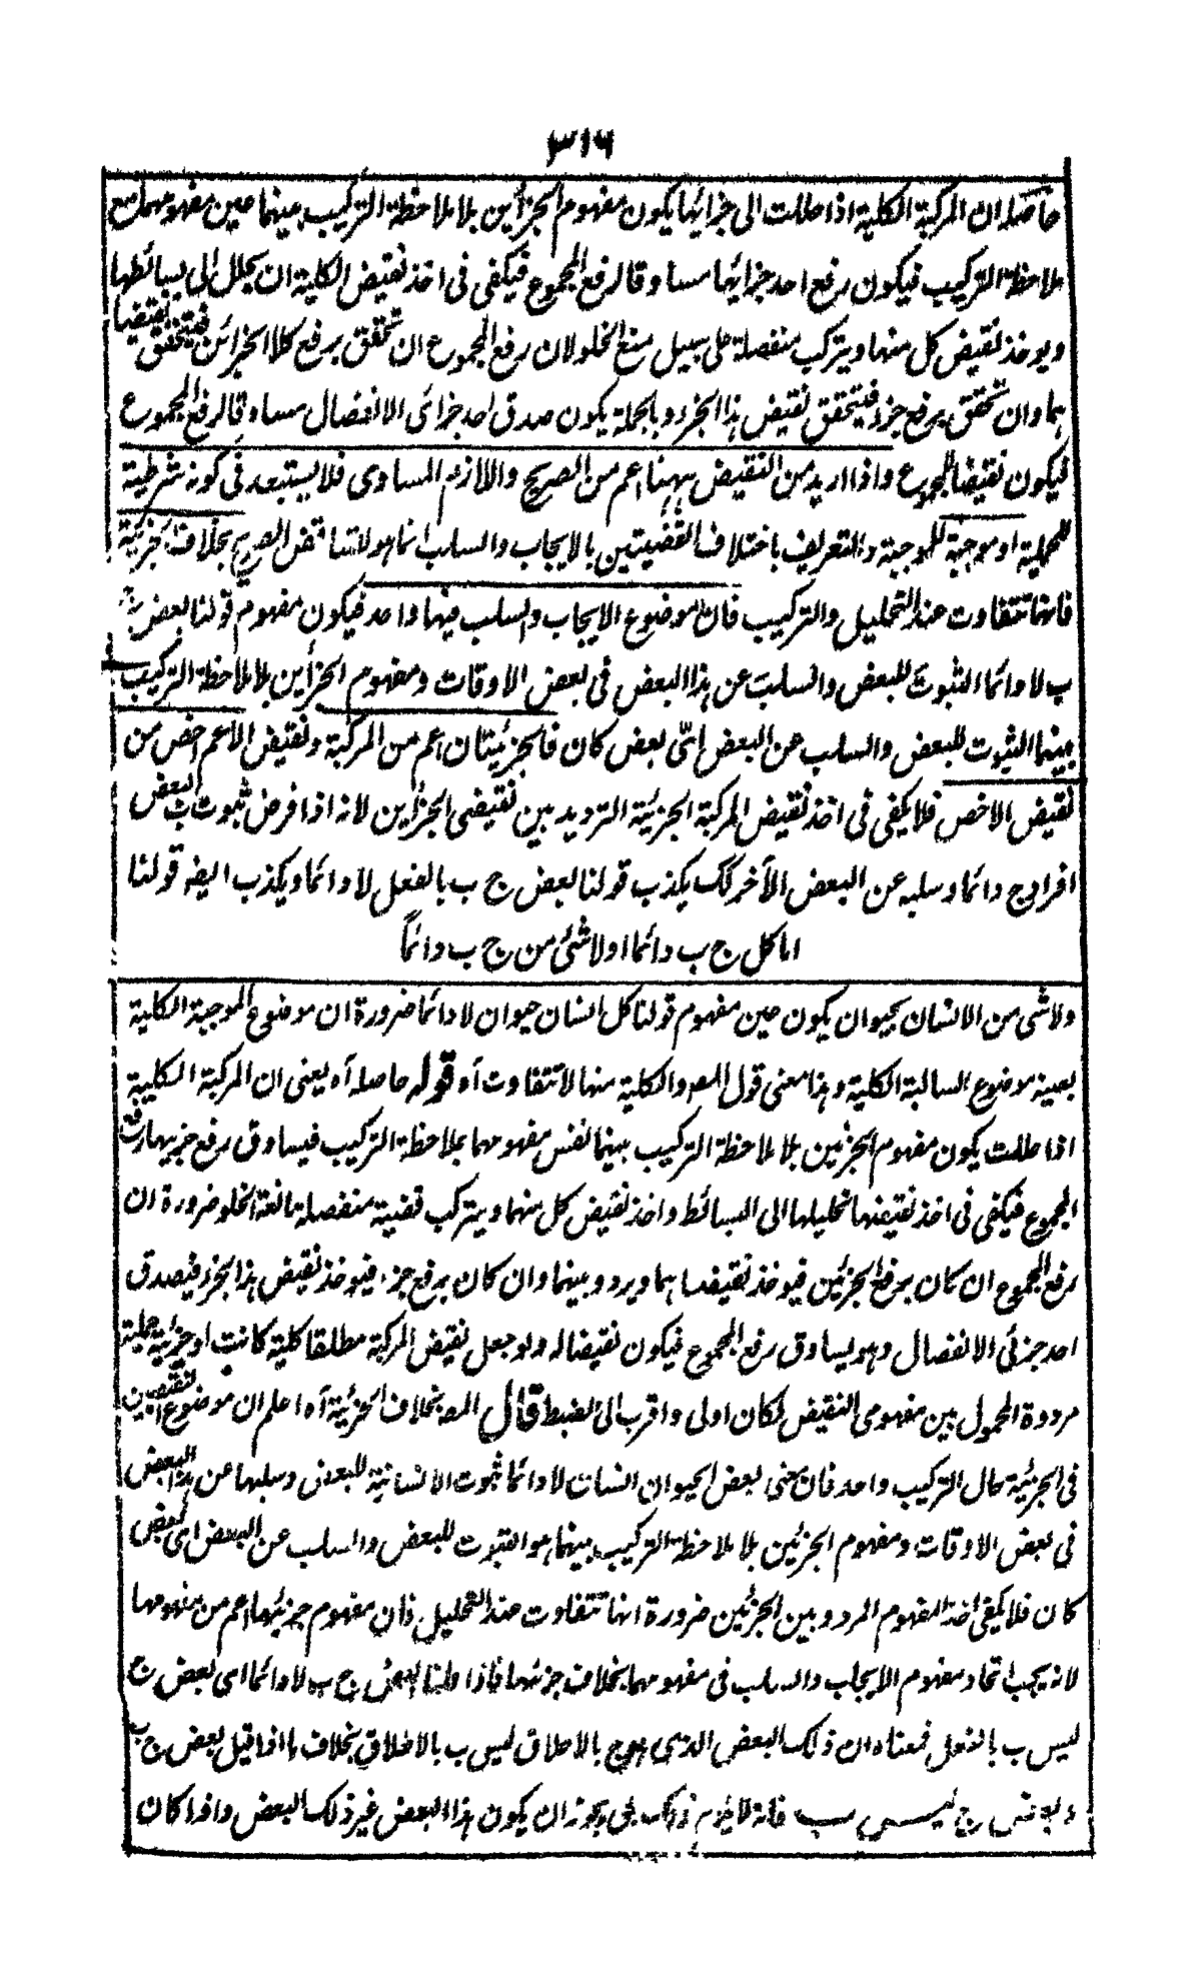 ٣١٦
حاصله ان المركبة الكلية اذا حللت الى جزائيها يكون مفهوم الجزأين بلا ملاحظة التركيب بينهما عين مفهومهما مع
ملاحظة التركيب فيكون رفع احد جزائيها مساوقا لرفع المجموع فيكفى فى اخذ نقيض الكلية ان يحلل الى بسائطها
ويوخذ نقيض كل منهما ويتركب منفصلة على سبيل منع الخلو لان رفع المجموع ان تحقق برفع كلا الجزائين فيتحقق نقيضا
هما وان تحقق برفع جزء فيتحقق نقيض هذا الجزء وبالجملة يكون صدق احد جزائى الانفصال مساوقا لرفع المجموع
فيكون نقيضا للمجموع واذا اريد من النقيض ههنا اعم من الصريح واللازم المساوى فلا يستبعد فى كونه شرطية
للحملية او موجبة للموجبة والتعريف باختلاف القضيتين بالايجاب والسلب انما هو للتناقض الصريح بخلاف الجزئية
فانها تتفاوت عند التحليل والتركيب فان موضوع الايجاب والسلب فيها واحد فيكون مفهوم قولنا بعض ج
ب لا دائما الثبوت للبعض والسلب عن هذا البعض فى بعض الاوقات ومفهوم الجزأين بلا ملاحظة التركيب
بينهما الثبوت للبعض والسلب عن البعض اىّ بعض كان فالجزئيتان اعم من المركبة ونقيض الاعم اخص من
نقيض الاخص فلا يكفى فى اخذ نقيض المركبة الجزئية الترديد بين نقيضى الجزأين لانه اذا فرض ثبوت ب لبعض
افراد ج دائما وسلبه عن البعض الأخر كك يكذب قولنا بعض ج ب بالفعل لا دائما ويكذب ايضه قولنا
اما كل ج ب دائما او لا شئ من ج ب دائماً
ولا شى من الانسان بحيوان يكون عين مفهوم قولنا كل انسان حيوان لا دائما ضرورة ان موضوع الموجبة الكلية
بعينه موضوع السالبة الكلية وهذا معنى قول المص والكلية منها لا تتفاوت آه قوله حاصله آه يعنى ان المركبة الكلية
اذا حللت يكون مفهوم الجزئين بلا ملاحظة التركيب بينهما نفس مفهومهما بملاحظة التركيب فيساوق رفع جزيها رفع
المجموع فيكفى فى اخذ نقيضها تحليلها الى البسائط واخذ نقيض كل منهما ويتركب قضية منفصلة مانعة الخلو ضرورة ان
رفع المجموع ان كان برفع الجزئين فيوخذ نقيضا هما ويردد بينهما وان كان برفع جزء فيوخذ نقيض هذا الجزء فيصدق
احد جزئى الانفصال وهو يساوق رفع المجموع فيكون نقيضا له ولو جعل نقيض المركبة مطلقا كلية كانت او جزئية حملية
مرددة المحمول بين مفهومى النقيض لكان اولى واقرب الى الضبط قال المص بخلاف الجزئية آه اعلم ان موضوع القضيتين
فى الجزئية حال التركيب واحد فان معنى بعض الحيوان انسان لا دائما ثبوت الانسانية للبعض وسلبها عن هذا البعض
فى بعض الاوقات ومفهوم الجزئين بلا ملاحظة التركيب بينهما هو الثبوت للبعض والسلب عن البعض اى بعض
كان فلا يكفى اخذ المفهوم المردد بين الجزئين ضرورة انها تتفاوت عند التحليل فان مفهوم جزئيها اعم من مفهومها
لانه يجب اتحاد مفهوم الايجاب والسلب فى مفهومها بخلاف جزئيها فاذا قلنا بعض ج ب لا دائما اى بعض ج
ليس ب بالفعل فمعناه ان ذلك البعض الذى هو ج بالاطلاق ليس ب بالاطلاق بخلاف ما اذا قيل بعض ج ب
وبعض ج ليس ب فانه لا يلزم ذلك بل يجوز ان يكون هذا البعض غير ذلك البعض واذا كان